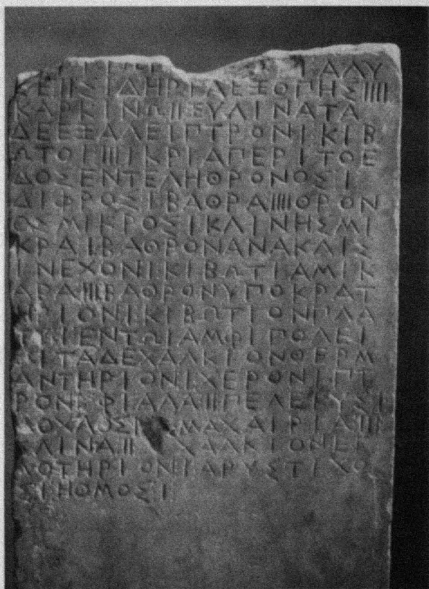 ΑΛΥ
ΚΕΙΙΣΙΔΗΡΙΑΕΞΟΠΗΣΙΙΙΙ
ΚΑΡΚΙΝΩΙΙΞΥΛΙΝΑΤΑ
ΔΕΕΞΑΛΕΙΠΤΡΟΝΙΚΙΒ
ΩΤΟΙΙΙΙΙΚΡΙΑΠΕΡΙΤΟΕ
ΔΟΣΕΝΤΕΛΗΘΡΟΝΟΣΙ
ΔΙΦΡΟΣΙΒΑΘΡΑΙΙΙΙΘΡΟΝ
ΟΣΜΙΚΡΟΣΙΚΛΙΝΗΣΜΙ
ΚΡΑΙΒΑΘΡΟΝΑΝΑΚΛΙΣ
ΙΝΕΧΟΝΙΚΙΒΩΤΙΑΜΙΚ
ΑΡΑΙΙΙΒΑΘΡΟΝΥΠΟΚΡΑΤ
ΗΡΙΟΝΙΚΙΒΩΤΙΟΝΠΛΑ
ΕΝΤΩΙΑΜΦΙΠΟΛΕΙ
ΩΙΤΑΔΕΧΑΛΚΙΟΝΘΕΡΜ
ΑΝΤΗΡΙΟΝΙΧΕΡΟΝΙΠΤ
ΡΟΝΙΦΙΑΛΑΙΙΠΕΛΕΚΥΣΙ
ΜΟΧΛΟΣΙΜΑΧΑΙΡΙΑΙΙΙ
ΚΛΙΝΑΙΙΧΑΛΚΙΟΝΕΚ
ΛΟΤΗΡΙΟΝΙΑΡΥΣΤΙΧΟ
ΣΙΗΘΜΟΣΙ